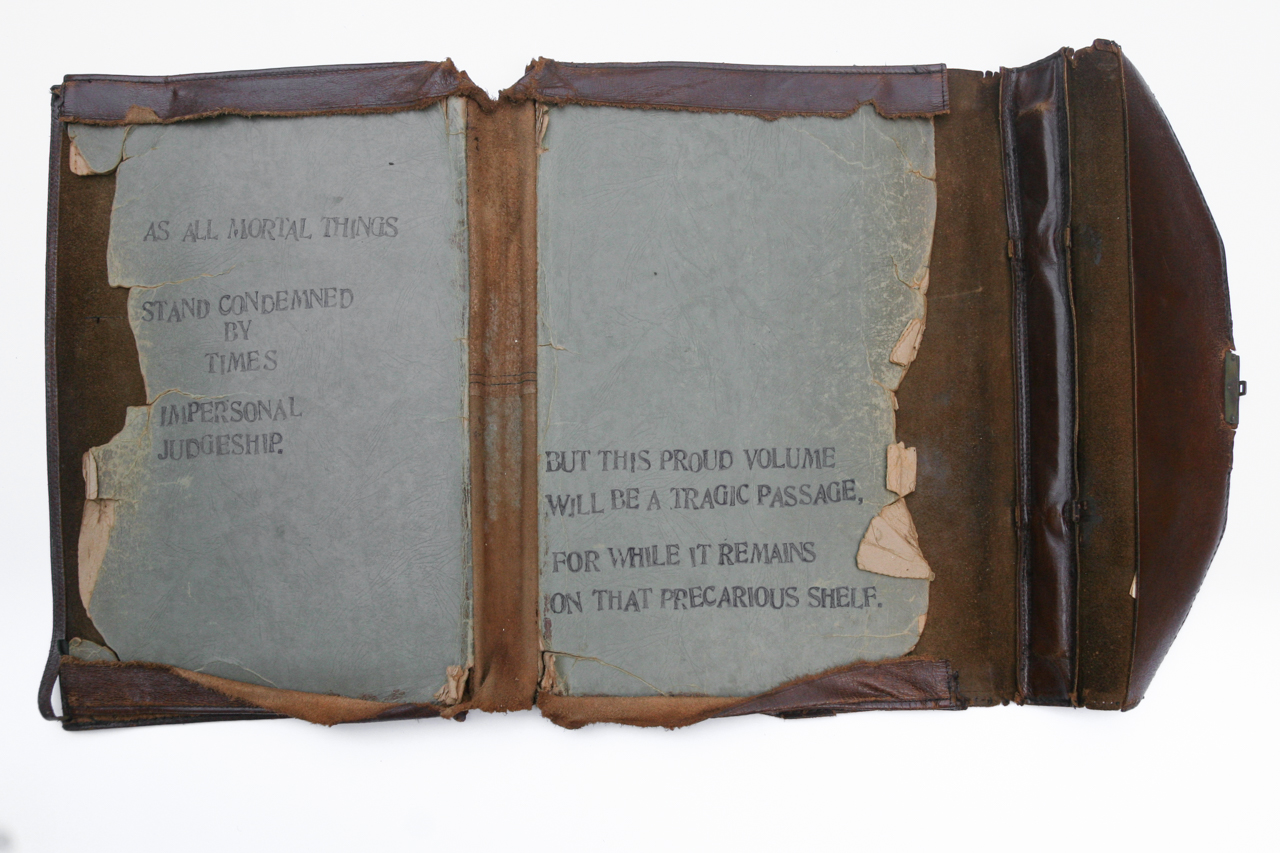 AS ALL MORTAL THINGS
STAND CONDEMNED
BY
TIMES
IMPERSONAL
JUDGESHIP.
BUT THIS PROUD VOLUME
WILL BE A TRAGIC PASSAGE,
FOR WHILE IT REMAINS
ON THAT PRECARIOUS SHELF.